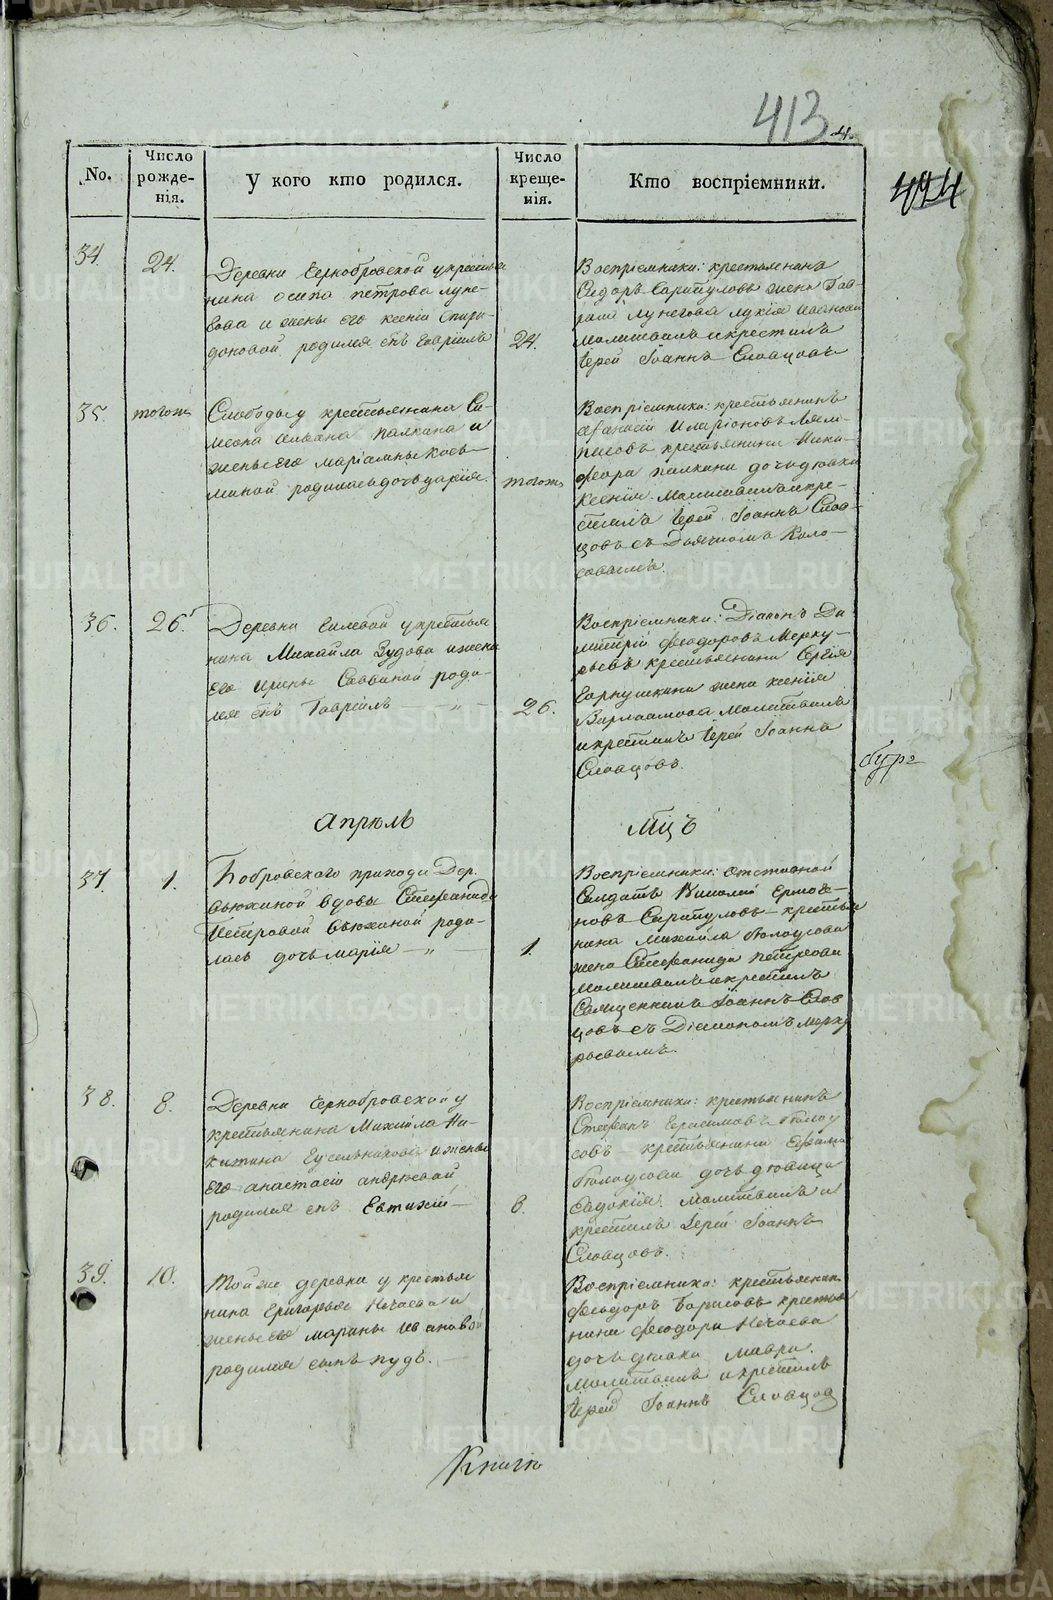 413
4.
494
No.
Число рожде-нія.
У кого кто родился.
Число креще-нія.
Кто воспріемники.
34.
24.
Деревни Чернобровской у крестья
нина осипа петрова луне-
гова и жены его ксеніи спири-
доновой родился снъ Гавріилъ
24.
Воспріемники: крестьянинъ
Сидоръ Сарапуловъ жена Гав-
рила Лунегова лукія
молитвилъ и крестилъ
Іерей Іоаннъ Словцовъ
35.
тогожъ
Слободы у крестьянина Си-
меона палкина и
жены его маріамны Козь-
миной родилась дочь дарія.
тогожъ
Воспріемники: крестьянинъ
афанасій Иларіоновъ
крестьянина Ники-
фора палкина дочь девка
Ксенія. Молитвилъ и кре-
стилъ Іерей Іоаннъ Слов-
цовъ съ Дьячкомъ Коло-
совымъ.
36.
26.
Деревни Гилевой у крестья
нина Михайла Зудова и жены
его ирины Саввиной роди-
лся снъ Гавріилъ — „ —
26.
Воспріемники: Діаконъ Ди
митрій Феодоровъ Мерку-
рьевъ крестьянина Сергія
жена ксенія
Варлаамова Молитвилъ
и крестилъ Іерей Іоаннъ
Словцовъ.
Апрель
Мцъ
37.
1.
Бобровскаго прихода Дер.
вьюхиной вдовы Стефаниды
Петровой вьюхиной роди-
лась дочь марія — „ —
1.
Воспріемники: отставной
Салдатъ Ермоге-
новъ Сарапуловъ крестья
нина Михайла Белоусова
жена Стефанида петрова
молитвилъ и крестилъ
Священникъ Іоаннъ Слов
цовъ съ Діакономъ Мерку
рьевымъ
38.
8.
Деревни Чернобровской у
крестьянина Михаила Ни-
китина Гусельникова и жены
его анастасіи андреевой
родился снъ Евтихій —
8.
Воспріемники: крестьянинъ
Стефанъ Герасимовъ Белоу
совъ крестьянина
Белоусова дочь девица
Евдокія. Молитвилъ и
крестилъ Іерей Іоаннъ
Словцовъ.
39.
10.
Той же деревни у крестья
нина Григорья Нечаева и
жены его марины Ивановой
родился сынъ пудъ. —
Воспріемники: крестьянин
Феодоръ Борисовъ крестья
нина Феодора Нечаева
дочь девка мавра.
Молитвилъ и крестилъ
Іерей Іоаннъ Словцов
Книгю
METRIKI.GASO-URAL.RU